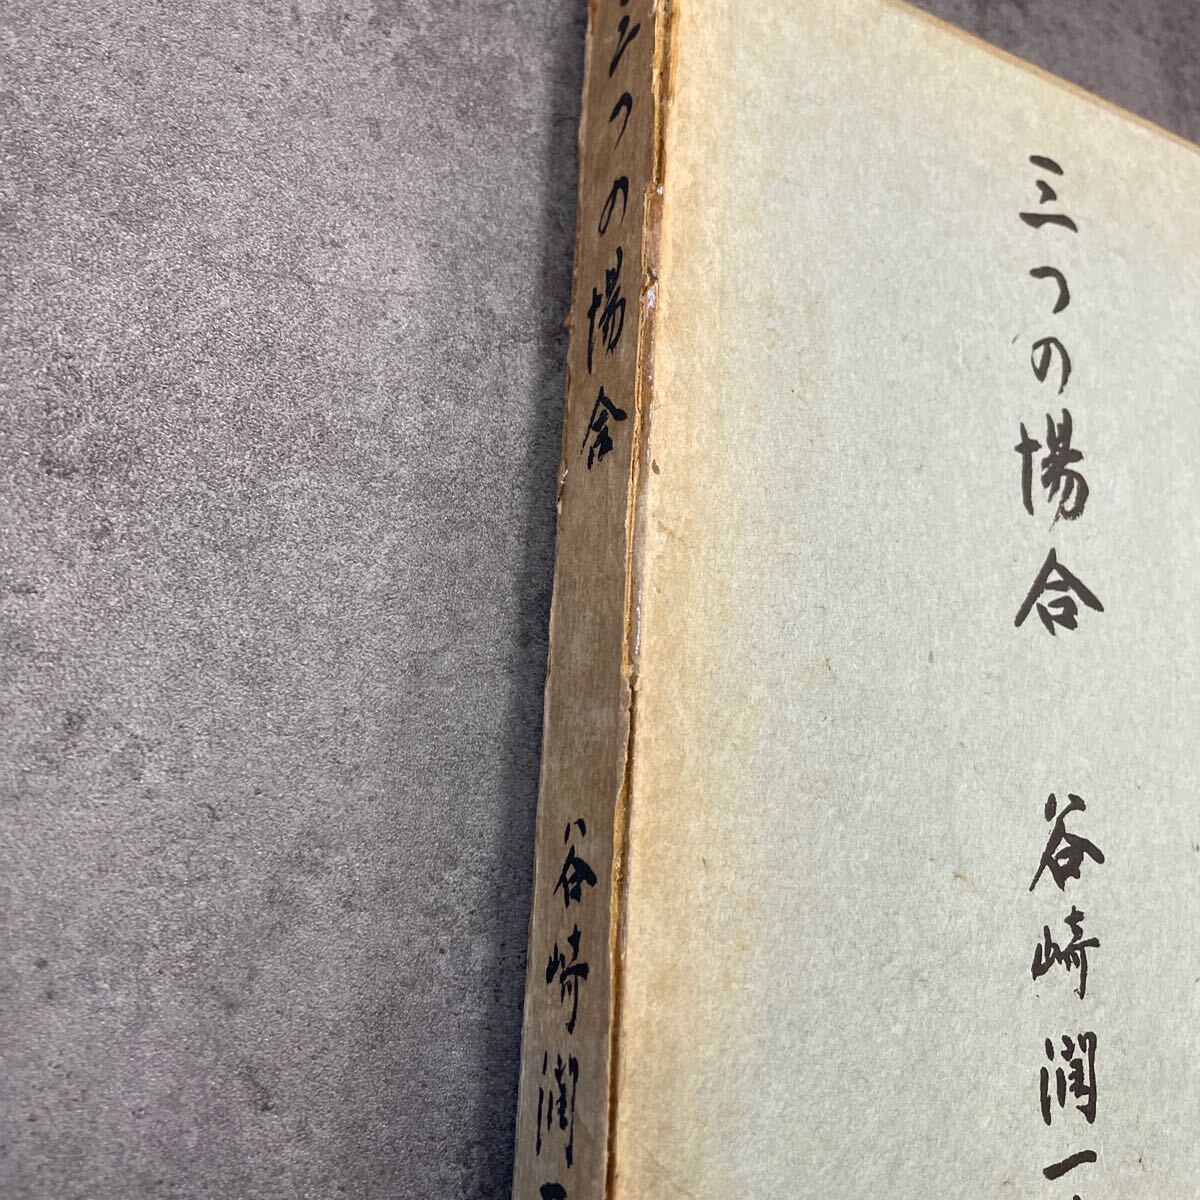 三つの場合
谷崎潤一
三つの場合
谷崎潤